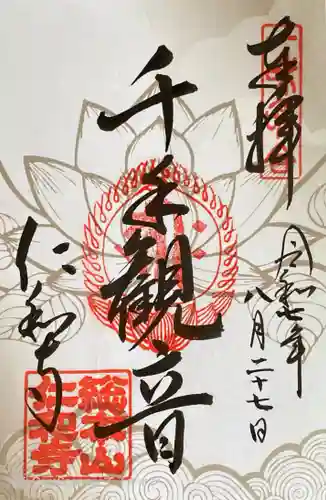 奉拝
令和七年
八月二十七日
千手観音
仁和寺
総本山
仁和寺